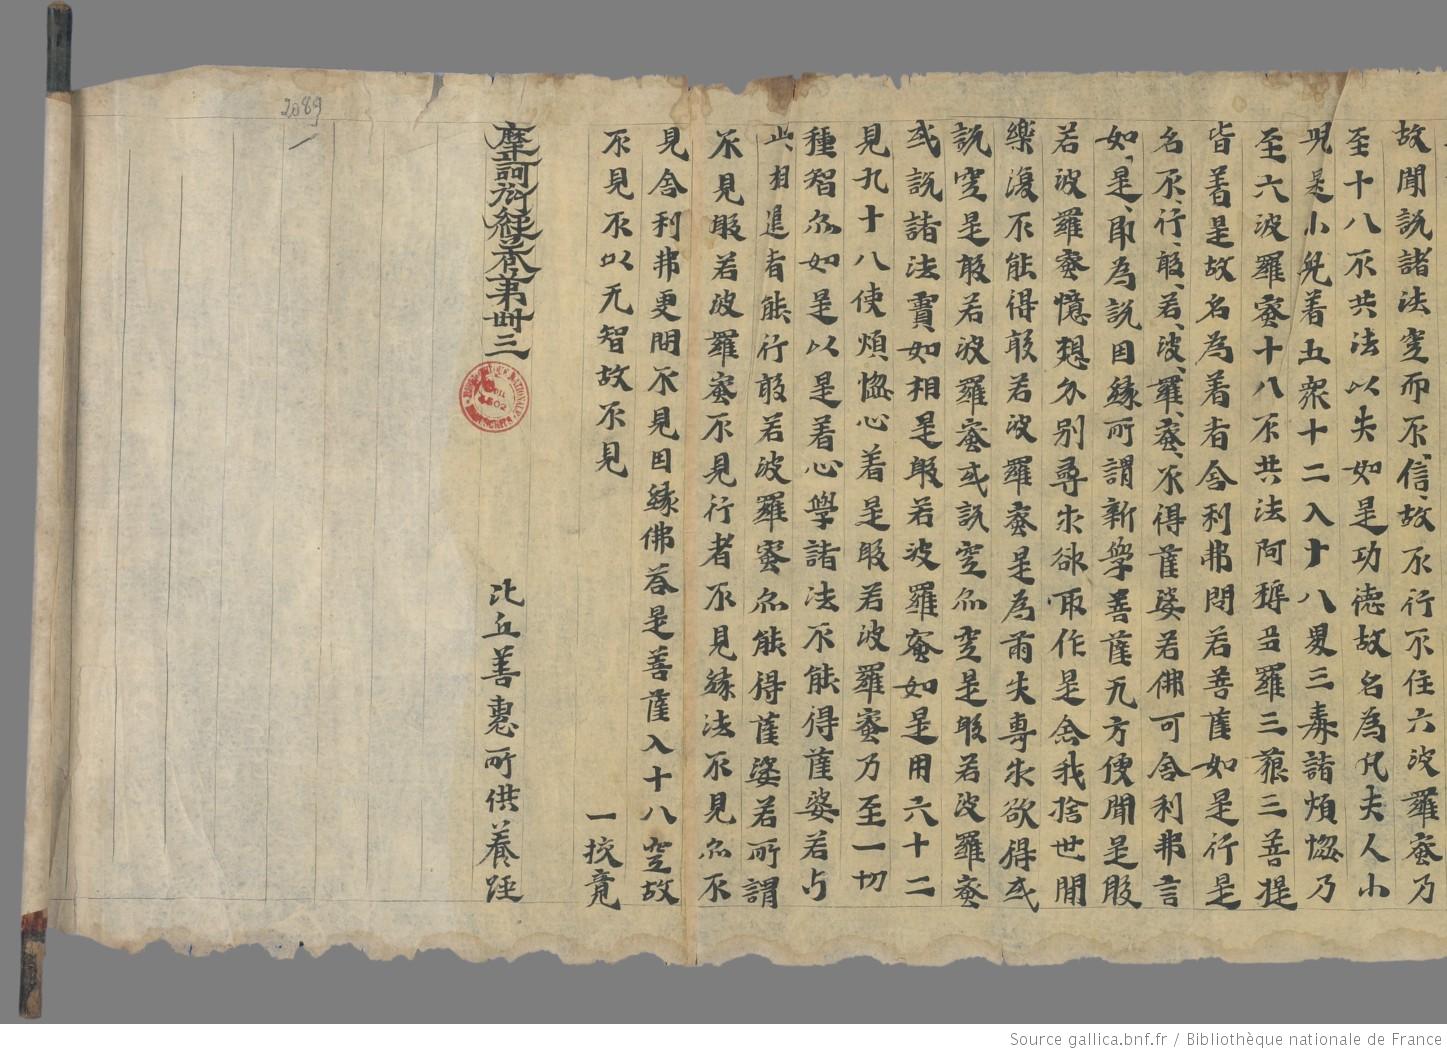 故聞說諸法空而不信故不行不住六波羅蜜乃
至十八不共法以失如是功德故名為凡夫人小
兒是小兒著五眾十二入十八界三毒諸煩惱乃
至六波羅蜜十八不共法阿耨多羅三藐三菩提
皆著是故名為著者舍利弗問若菩薩如是行是
名不行般若波羅蜜不得薩婆若佛可舍利弗言
如是即為說因緣所謂新學菩薩无方便聞是般
若波羅蜜憶想分別尋求欲取作是念我捨世間
樂復不能得般若波羅蜜是為兩失專求欲得或
說空是般若波羅蜜或說空亦空是般若波羅蜜
或說諸法實如相是般若波羅蜜如是用六十二
見九十八使煩惱心著是般若波羅蜜乃至一切
種智亦如是以是著心學諸法不能得薩婆若与
此相違者能行般若波羅蜜亦能得薩婆若所謂
不見般若波羅蜜不見行者不見緣法不見亦不
見舍利弗更問不見因緣佛荅是菩薩入十八空故
不見不以无智故不見
一挍竟
摩訶衍經卷第卌三
比丘善惠所供養經
2089
Source gallica.bnf.fr / Bibliothèque nationale de France